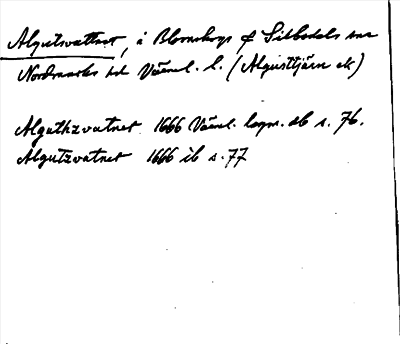 Algutsvattnet, i Blomskogs o Silbodals snr
Nordmarks hd Värml. l. (Algusttjärn ek)
Alguthzvatnet 1666 Värml. lagm. db s. 76.
Algutzvatnet 1666 ib s. 77